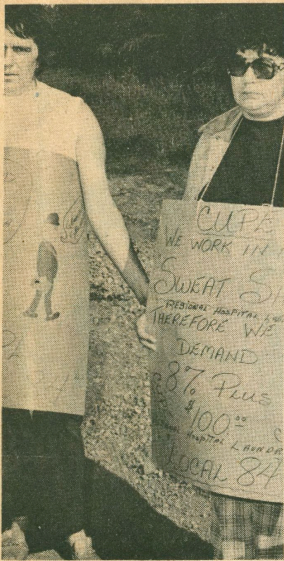 CUPE
WE WORK IN
SWEAT S
REGIONAL HOSPITAL
THEREFORE WE
DEMAND
8% PLUS
$100.00
HOSPITAL LAUNDR
LOCAL 84